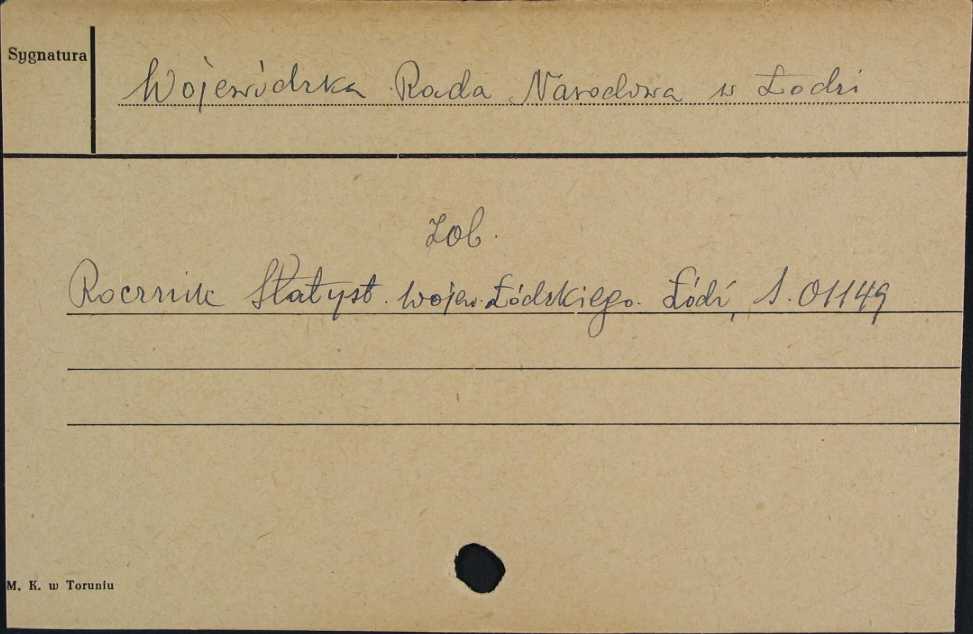 Sygnatura
Wojewódzka Rada Narodowa w Łodzi
zob.
Rocznik Statyst. Wojew. Łódzkiego. Łódź, S. 01149
M. K. w Toruniu